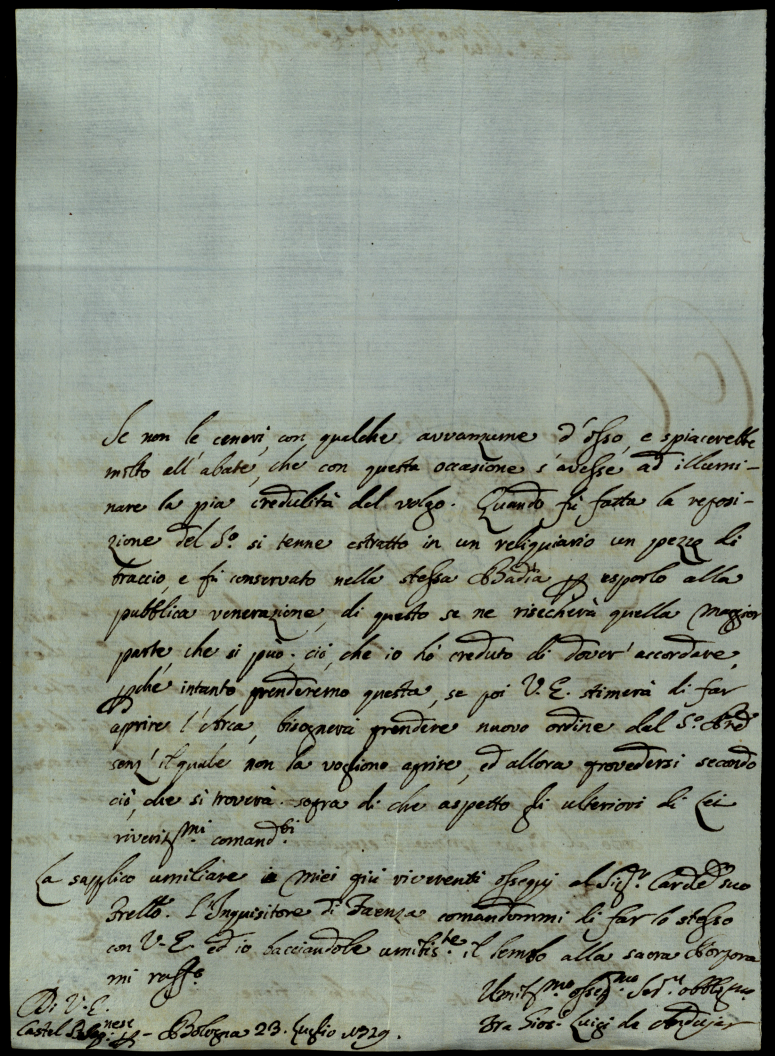 Se non le ceneri, con qualche avvanzume d'osso, e spiacerebbe
molto all'abate, che con questa occasione s'avesse ad illumi-
nare la pia credulità del volgo. Quando fù fatta la reposi-
zione del S.o si tenne estratto in un reliquiario un pezzo di
braccio, e fù conservato nella stessa Badia p esporlo alla
pubblica venerazione, di questo se ne risecherà quella maggior
parte, che si può; ciò, che io hò creduto di dover' accordare,
pché intanto prenderemo questa, se poi V. E. stimerà di far
aprire l'Arca, bisognerà prendere nuovo ordine dal S.o
senz' il quale non la vogliono aprire, ed allora provedersi secondo
ciò, che si troverà. sopra di che aspetto gli ulteriori di Lei
riverit.mi comand.bi
La supplico umiliare i miei più riverenti ossequj al Sig.r Card.e suo
Frello. l'Inquisitore di Faenza comandommi di far lo stesso
con V. E. ed io bacciandole umilis.te il lembo alla sacra Porpora
mi rass.o
Di V. E.
Umil.mo osseq.mo Ser.e obblig.mo
Castel Bolognese - Bologna 23. Luglio 1729.
Fra Gios. Luigi da Andujar